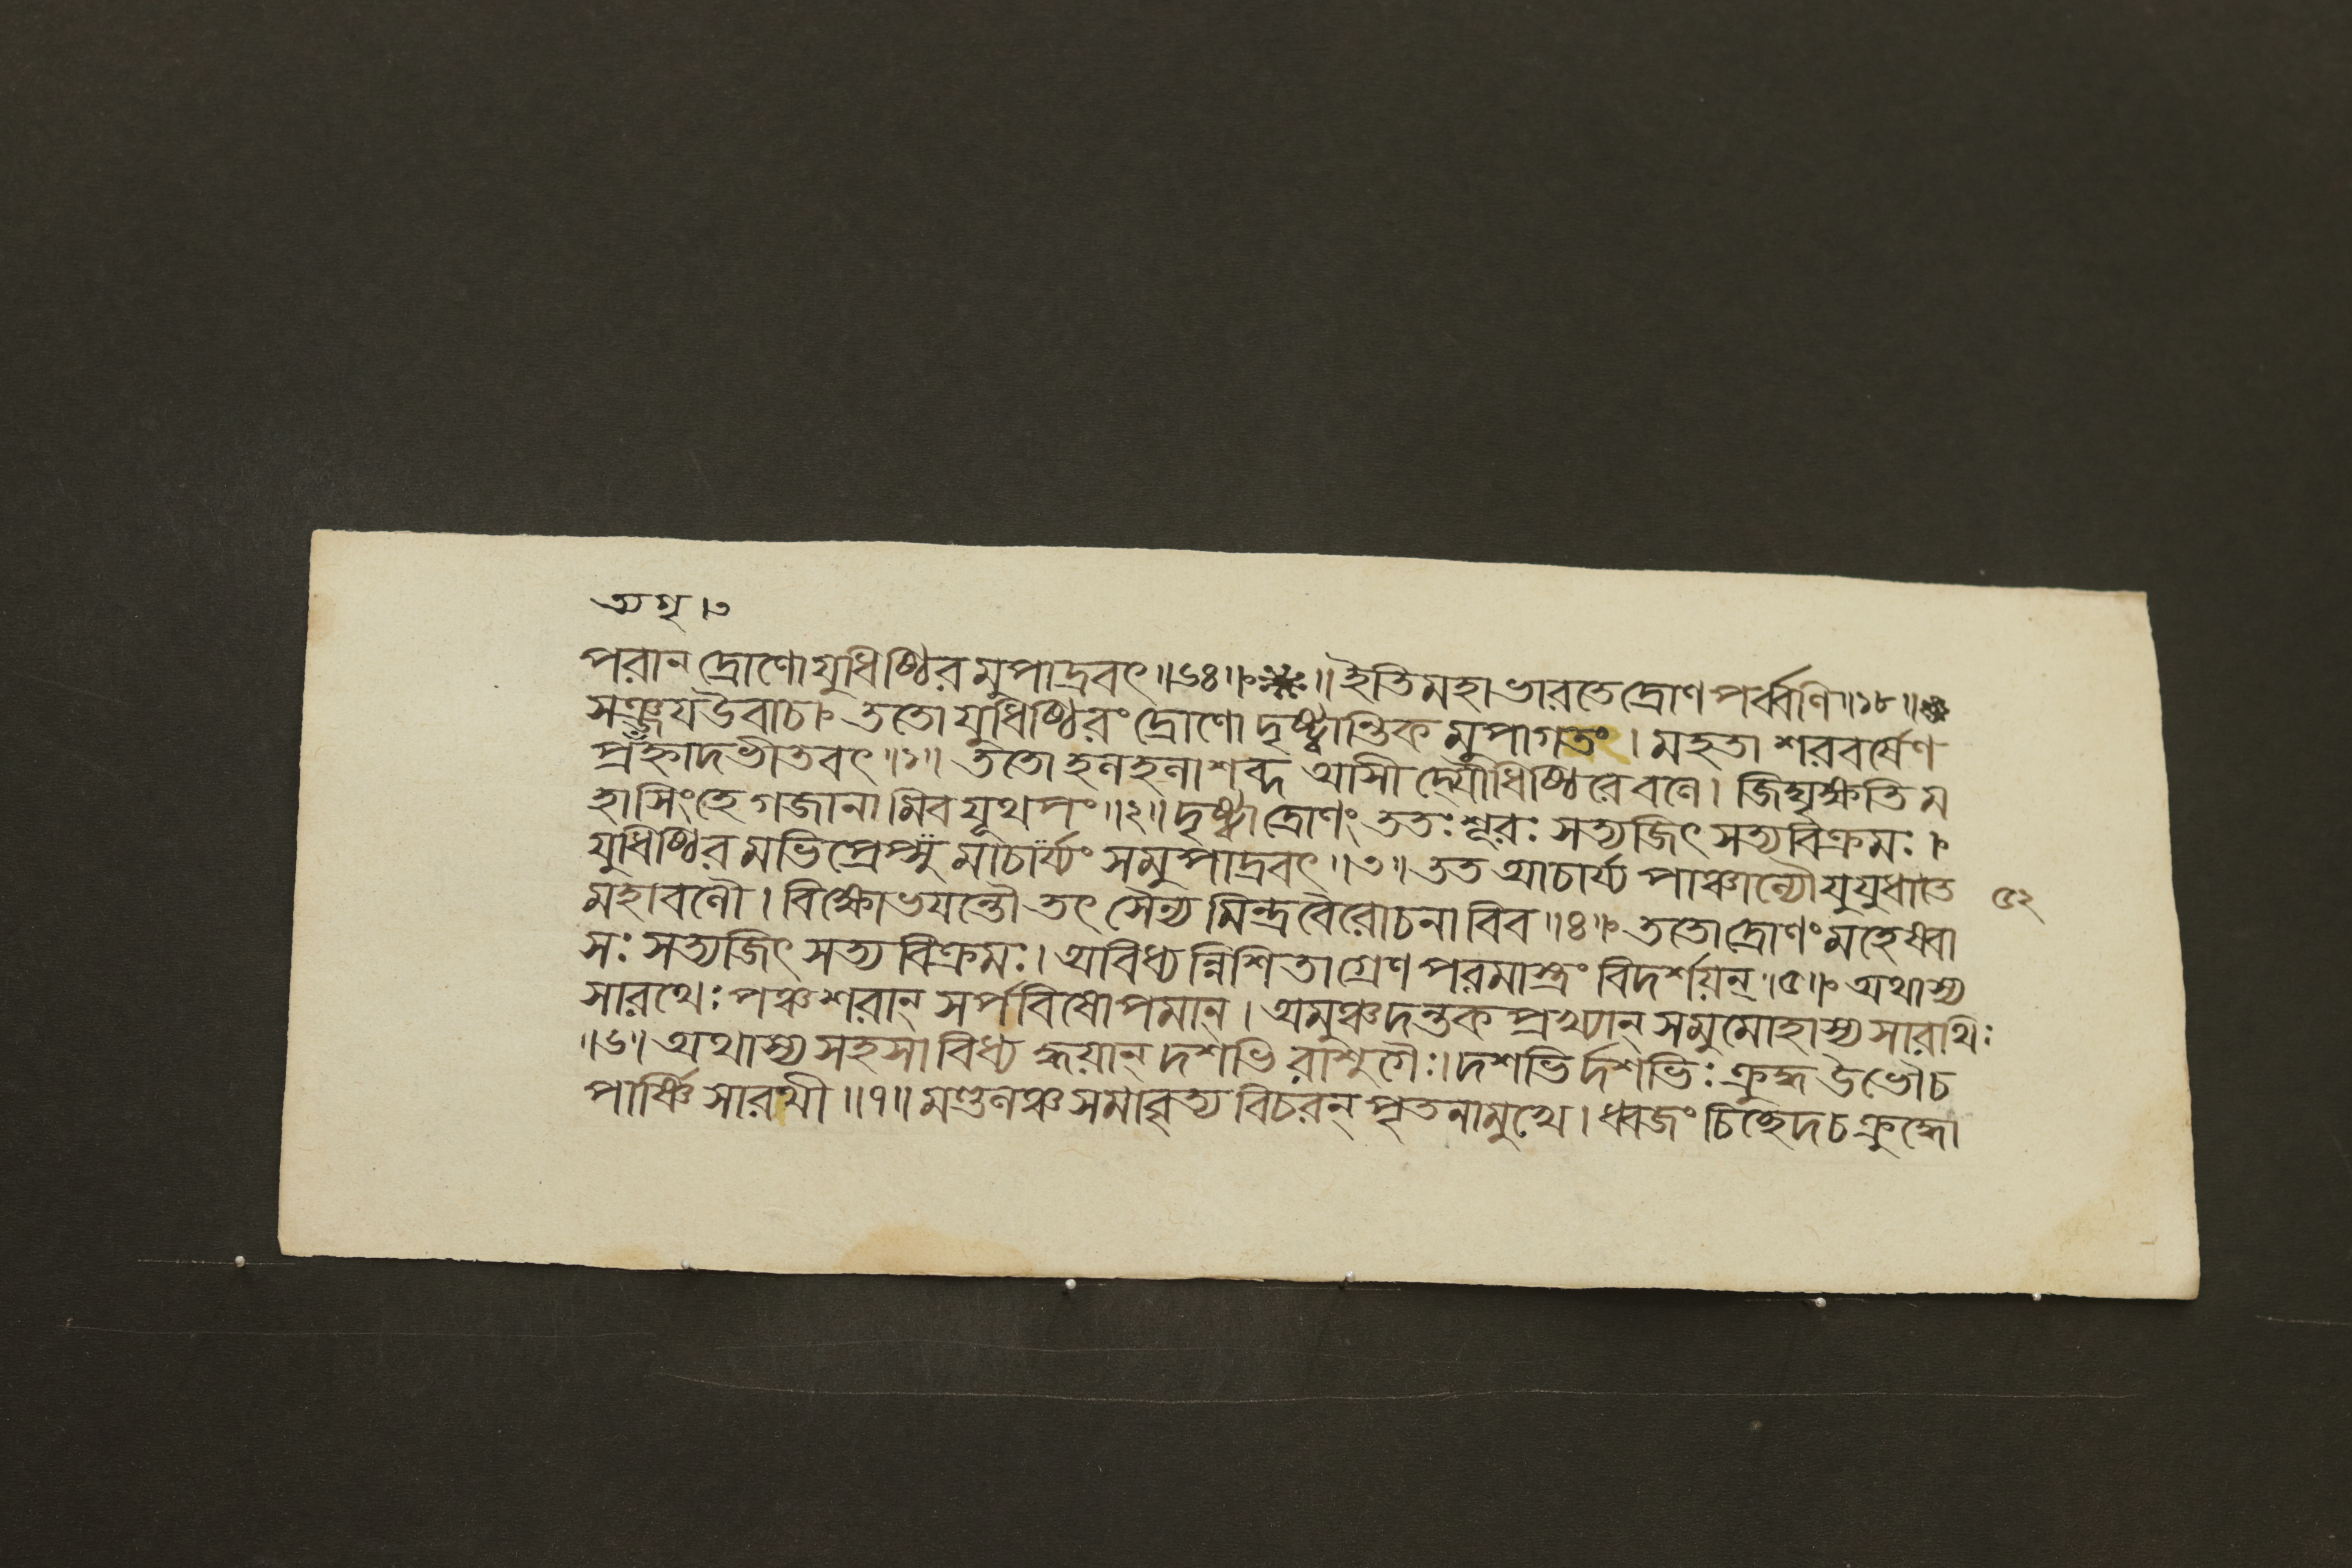 অগ্ৰ ।৩
পরান দ্রোণো যুধিষ্ঠির মুপাদ্রবৎ ॥৬৪॥ ॥ ইতি মহাভারতে দ্রোণ পর্ব্বণি ॥১৮॥
সঞ্জয উবাচ। ততো যুধিষ্ঠিরং দ্রোণো দৃষ্ট্বান্তিক মুপাগতং । মহতা শরবর্ষেণ
প্রহ্নাদভীতবৎ ॥১॥ ততো হনহনা শব্দ আসী দ্যৌধিষ্ঠিরে বণে। জিঘৃক্ষতি ম
হাসিংহে গজানামিব যূথপং ॥২॥ দৃষ্ট্বা দ্রোণং ততঃ শূরঃ সত্যজিৎ সত্যবিক্রমঃ।
যুধিষ্ঠির মভিপ্রেপ্সু মাচার্য্যং সমুপাদ্রবৎ ॥৩॥ তত আচার্য্য পাঞ্চান্যৌ যুযুধাতে
মহাবণৌ। বিক্ষোভযন্তৌ তৎ সৈন্য মিন্দ্র বৈরোচনাবিব ॥৪॥ ততো দ্রোণং মহেষ্বা
৫২
সঃ সত্যজিৎ সত্য বিক্রমঃ। অবিধ্যন্নিশিতাগ্রেণ পরমাস্ত্রং বিদর্শয়ন্ ॥৫॥ অথাস্য
সারথেঃ পঞ্চ শরান্ সর্পবিষোপমান্। অমুঞ্চদন্তক প্রখ্যান্ সমুমোহাস্য সারথিঃ
॥৬॥ অথাস্য সহসা বিধ্য দ্ধয়ান্ দশভি রাশুগৈঃ। দশভি র্দশভিঃ ক্রুদ্ধ উভৌ চ
পার্ষ্ণি সারথী ॥৭॥ মণ্ডনঞ্চ সমাবৃত্য বিচরন্ পৃতনামুখে। ধ্বজং চিচ্ছেদ চ ক্রুদ্ধো